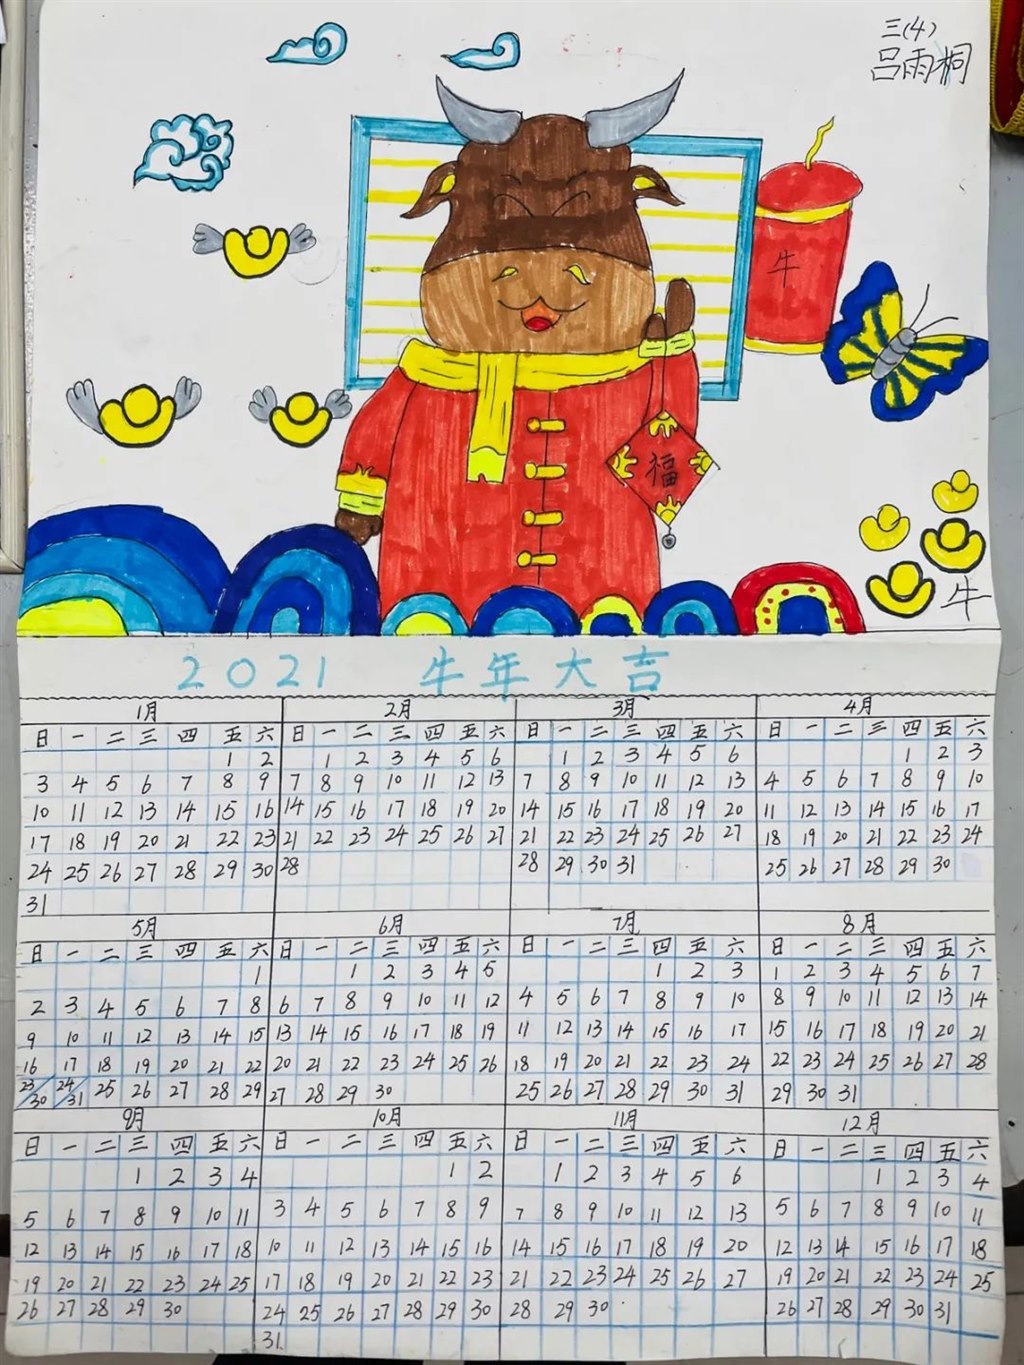 三(4)
吕雨桐
牛
福
牛
2021 牛年大吉
1月 2月 3月 4月
日 一 二 三 四 五 六 日 一 二 三 四 五 六 日 一 二 三 四 五 六 日 一 二 三 四 五 六
1 2 1 2 3 4 5 6 1 2 3 4 5 6 1 2 3
3 4 5 6 7 8 9 7 8 9 10 11 12 13 7 8 9 10 11 12 13 4 5 6 7 8 9 10
10 11 12 13 14 15 16 14 15 16 17 18 19 20 14 15 16 17 18 19 20 11 12 13 14 15 16 17
17 18 19 20 21 22 23 21 22 23 24 25 26 27 21 22 23 24 25 26 27 18 19 20 21 22 23 24
24 25 26 27 28 29 30 28 28 29 30 31 25 26 27 28 29 30
31
5月 6月 7月 8月
日 一 二 三 四 五 六 日 一 二 三 四 五 六 日 一 二 三 四 五 六 日 一 二 三 四 五 六
1 1 2 3 4 5 1 2 3 1 2 3 4 5 6 7
2 3 4 5 6 7 8 6 7 8 9 10 11 12 4 5 6 7 8 9 10 8 9 10 11 12 13 14
9 10 11 12 13 14 15 13 14 15 16 17 18 19 11 12 13 14 15 16 17 15 16 17 18 19 20 21
16 17 18 19 20 21 22 20 21 22 23 24 25 26 18 19 20 21 22 23 24 22 23 24 25 26 27 28
23/30 24/31 25 26 27 28 29 27 28 29 30 25 26 27 28 29 30 31 29 30 31
9月 10月 11月 12月
日 一 二 三 四 五 六 日 一 二 三 四 五 六 日 一 二 三 四 五 六 日 一 二 三 四 五 六
1 2 3 4 1 2 1 2 3 4 5 6 1 2 3 4
5 6 7 8 9 10 11 3 4 5 6 7 8 9 7 8 9 10 11 12 13 5 6 7 8 9 10 11
12 13 14 15 16 17 18 10 11 12 13 14 15 16 14 15 16 17 18 19 20 12 13 14 15 16 17 18
19 20 21 22 23 24 25 17 18 19 20 21 22 23 21 22 23 24 25 26 27 19 20 21 22 23 24 25
26 27 28 29 30 24 25 26 27 28 29 30 28 29 30 26 27 28 29 30 31
31